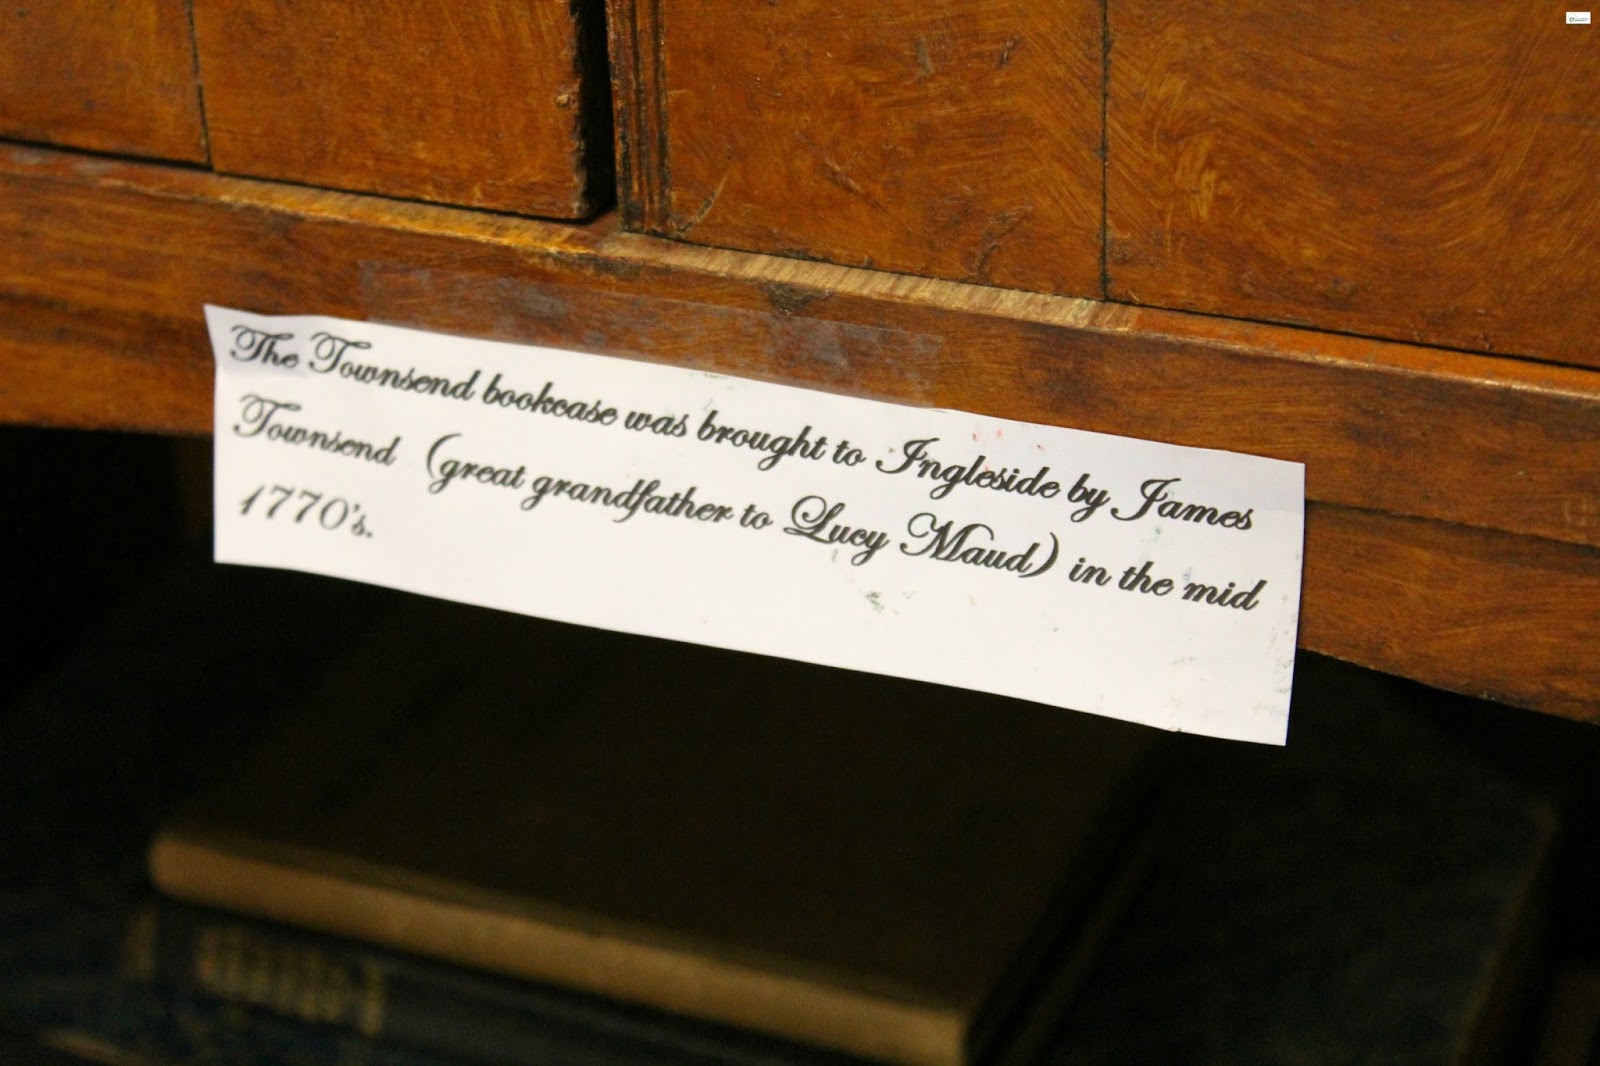 The Townsend bookcase was brought to Ingleside by James
Townsend (great grandfather to Lucy Maud) in the mid
1770's.